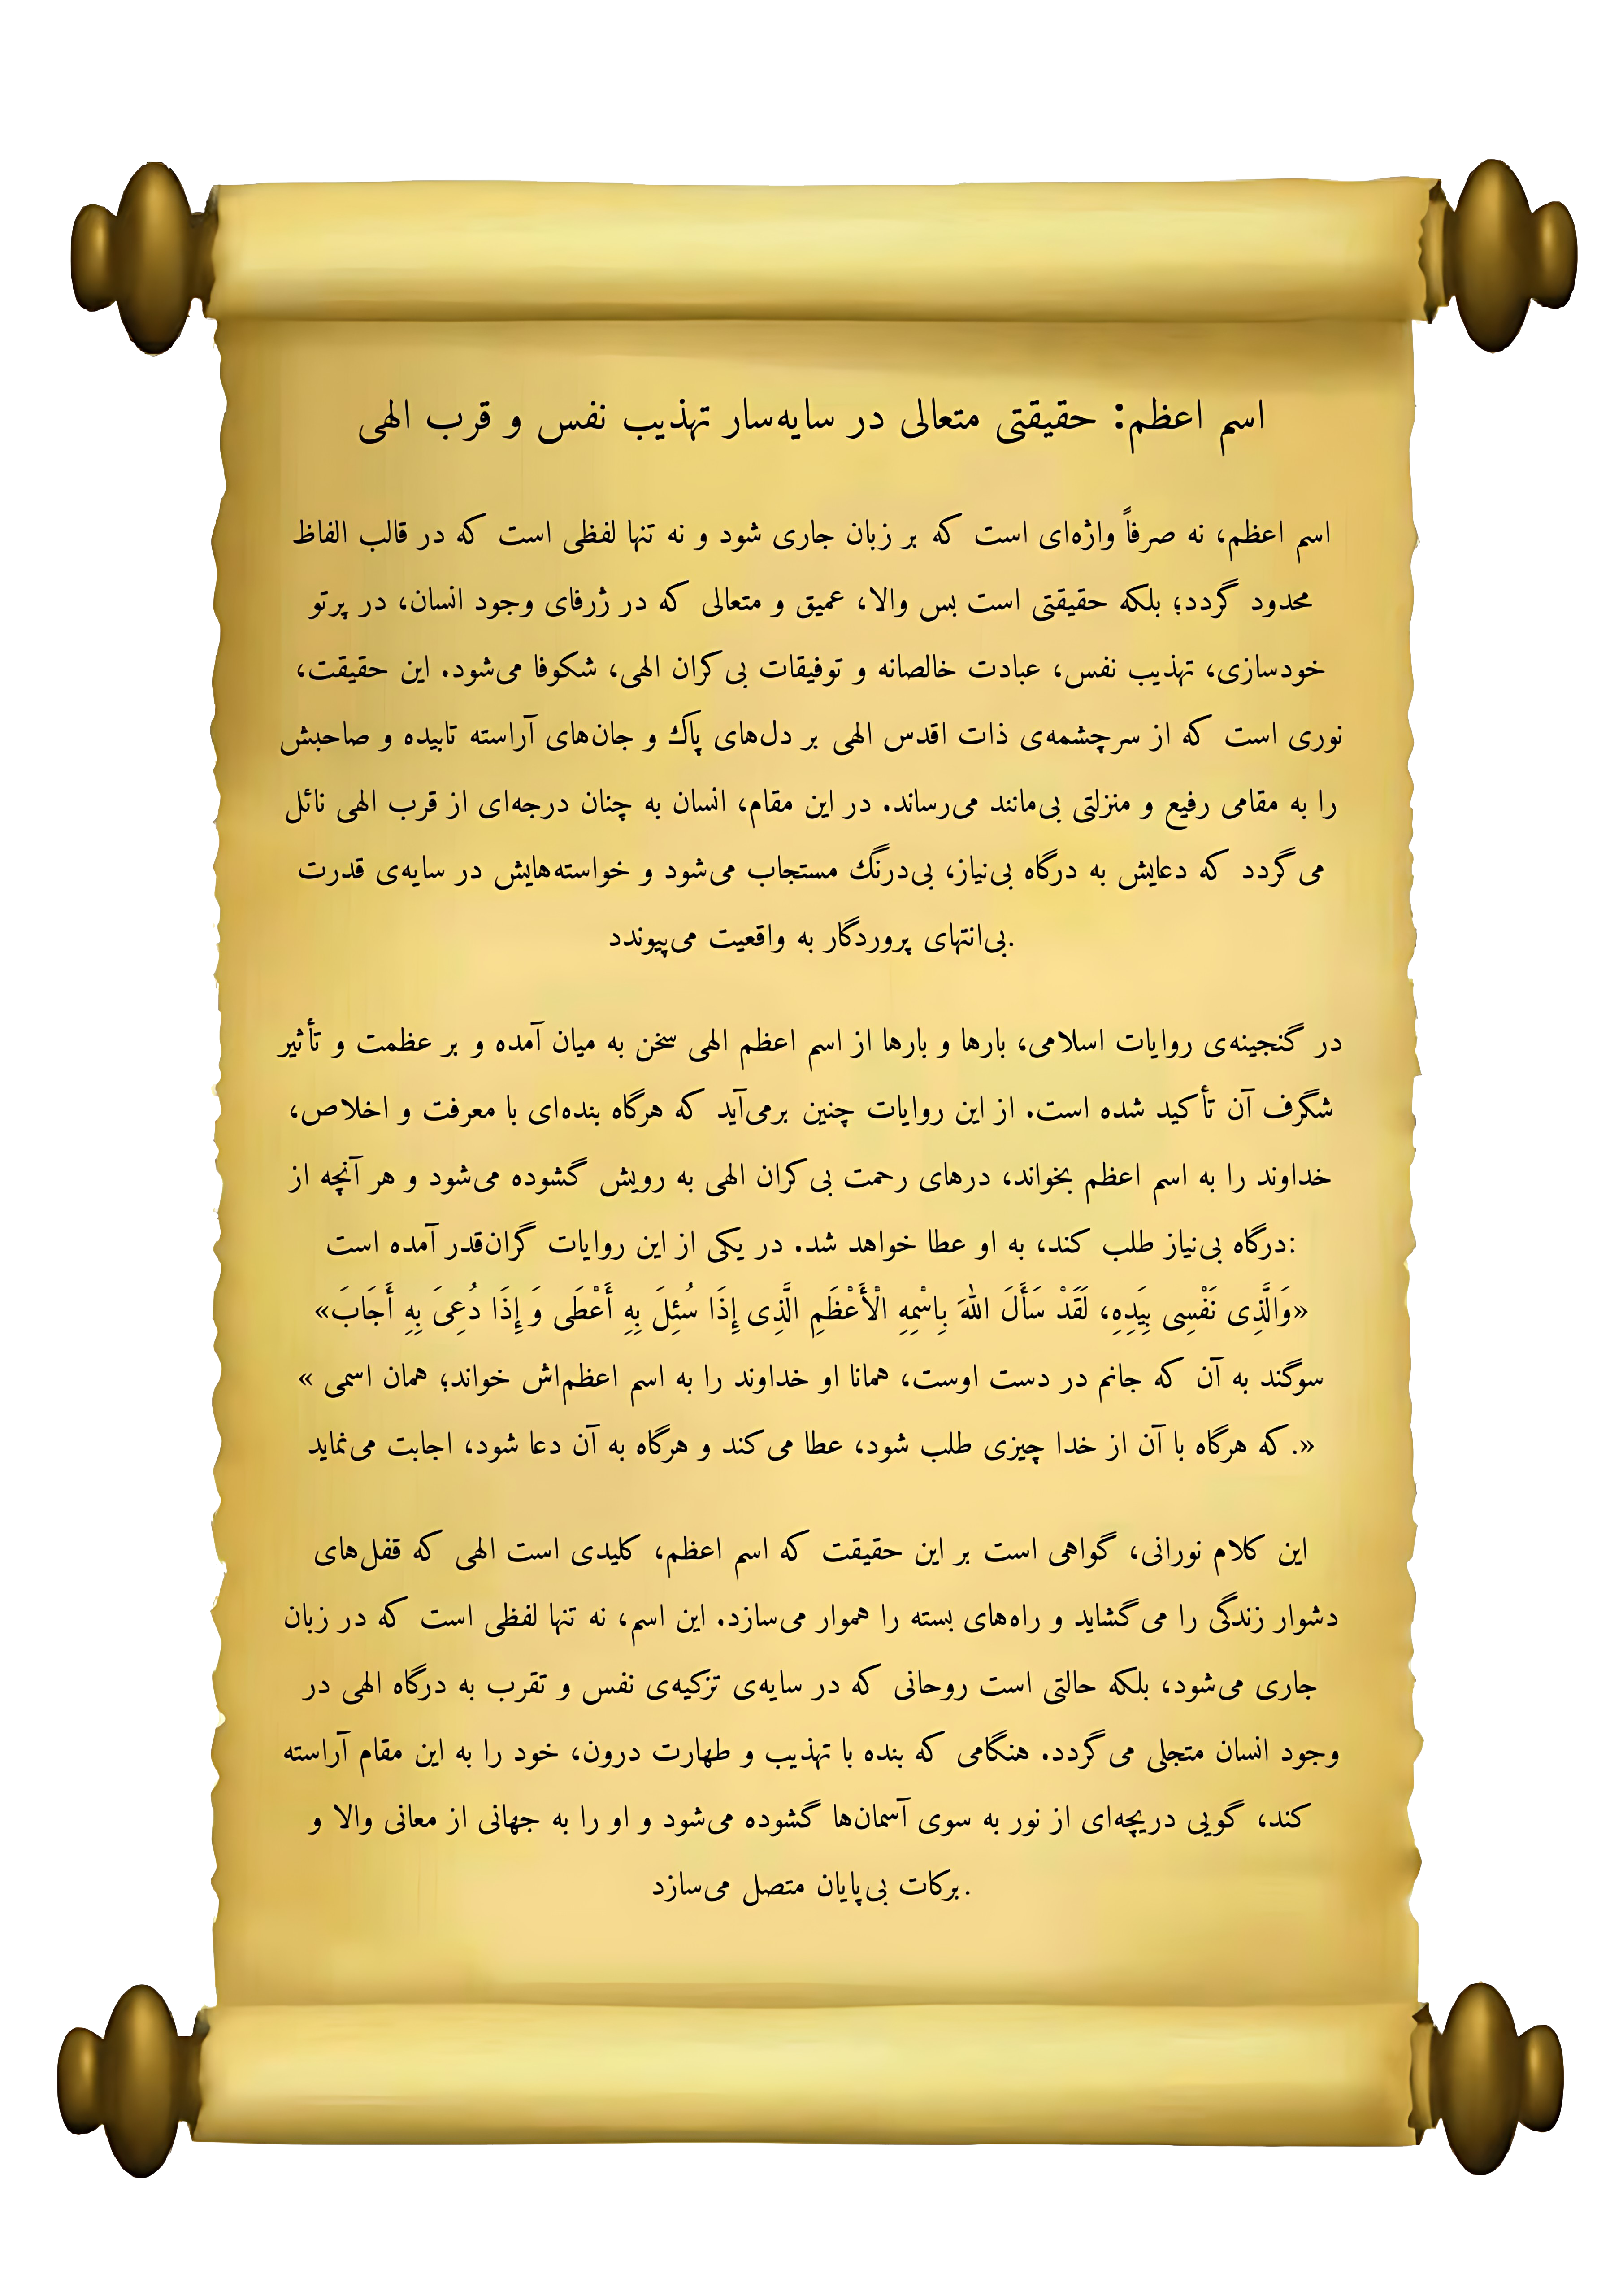 اسم اعظم: حقیقتی متعالی در سایه‌سار تهذیب نفس و قرب الهی
اسم اعظم، نه صرفاً واژه‌ای است که بر زبان جاری شود و نه تنها لفظی است که در قالب الفاظ
محدود گردد؛ بلکه حقیقتی است بس والا، عمیق و متعالی که در ژرفای وجود انسان، در پرتو
خودسازی، تهذیب نفس، عبادت خالصانه و توفیقات بی‌کران الهی، شکوفا می‌شود. این حقیقت،
نوری است که از سرچشمه‌ی ذات اقدس الهی بر دل‌های پاک و جان‌های آراسته تابیده و صاحبش
را به مقامی رفیع و منزلتی بی‌مانند می‌رساند. در این مقام، انسان به چنان درجه‌ای از قرب الهی نائل
می‌گردد که دعایش به درگاه بی‌نیاز، بی‌درنگ مستجاب می‌شود و خواسته‌هایش در سایه‌ی قدرت
.بی‌انتهای پروردگار به واقعیت می‌پیوندد
در گنجینه‌ی روایات اسلامی، بارها و بارها از اسم اعظم الهی سخن به میان آمده و بر عظمت و تأثیر
شگرف آن تأکید شده است. از این روایات چنین برمی‌آید که هرگاه بنده‌ای با معرفت و اخلاص،
خداوند را به اسم اعظم بخواند، درهای رحمت بی‌کران الهی به رویش گشوده می‌شود و هر آنچه از
:درگاه بی‌نیاز طلب کند، به او عطا خواهد شد. در یکی از این روایات گران‌قدر آمده است
«وَالَّذِی نَفْسِی بِیَدِهِ، لَقَدْ سَأَلَ اللهَ بِاسْمِهِ الْأَعْظَمِ الَّذِی إِذَا سُئِلَ بِهِ أَعْطَی وَ إِذَا دُعِیَ بِهِ أَجَابَ»
سوگند به آن که جانم در دست اوست، همانا او خداوند را به اسم اعظم‌اش خواند؛ همان اسمی »
«.که هرگاه با آن از خدا چیزی طلب شود، عطا می‌کند و هرگاه به آن دعا شود، اجابت می‌نماید
این کلام نورانی، گواهی است بر این حقیقت که اسم اعظم، کلیدی است الهی که قفل‌های
دشوار زندگی را می‌گشاید و راه‌های بسته را هموار می‌سازد. این اسم، نه تنها لفظی است که در زبان
جاری می‌شود، بلکه حالتی است روحانی که در سایه‌ی تزکیه‌ی نفس و تقرب به درگاه الهی در
وجود انسان متجلی می‌گردد. هنگامی که بنده با تهذیب و طهارت درون، خود را به این مقام آراسته
کند، گویی دریچه‌ای از نور به سوی آسمان‌ها گشوده می‌شود و او را به جهانی از معانی والا و
.برکات بی‌پایان متصل می‌سازد